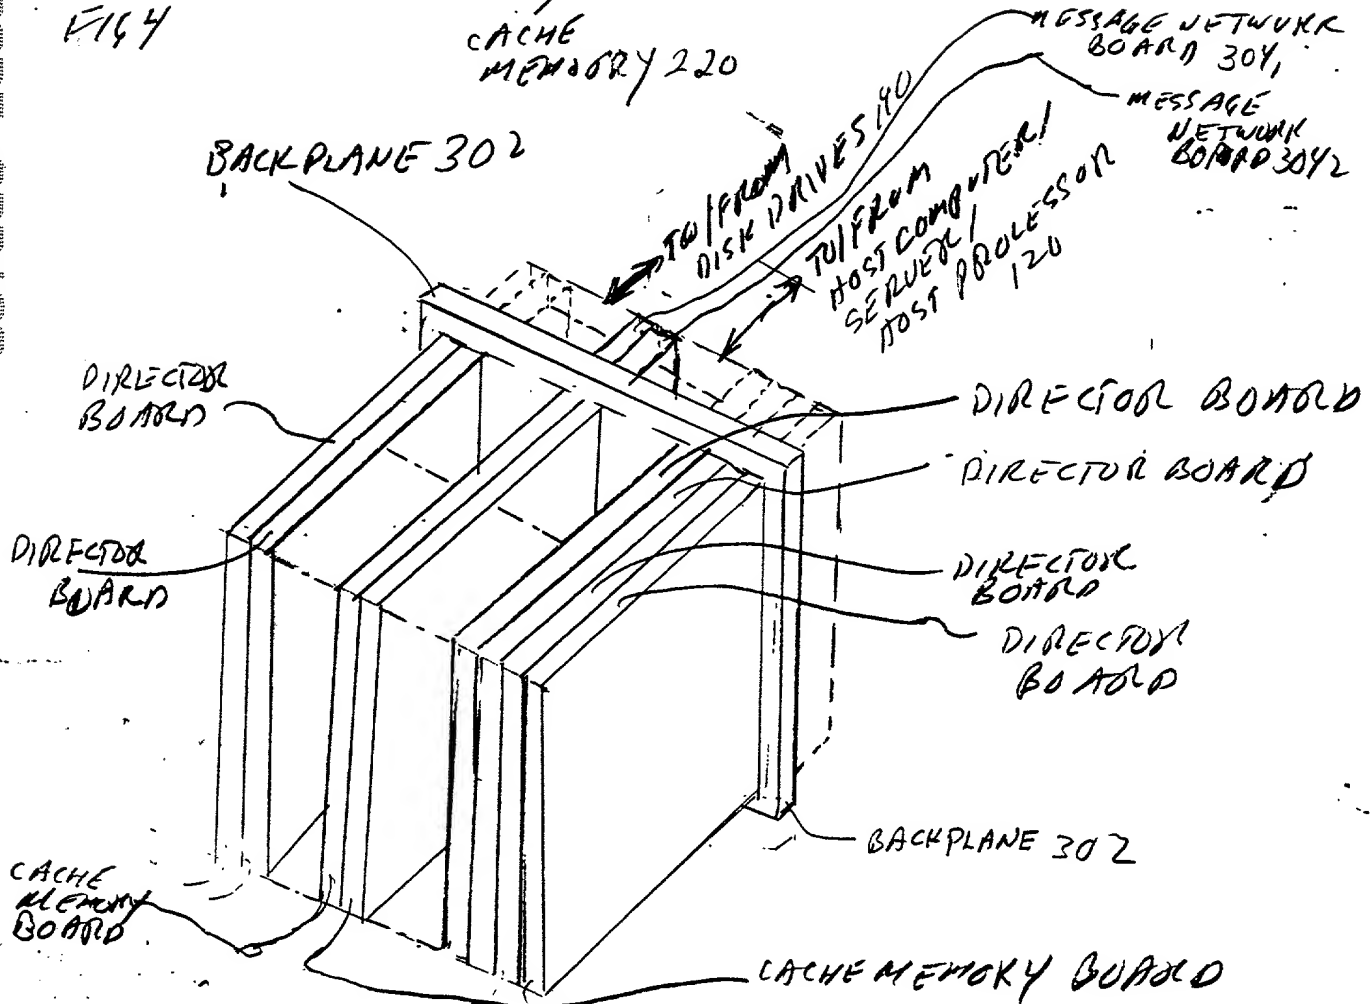 FIG 4
CACHE
MEMORY 220
MESSAGE NETWORK
BOARD 304,
MESSAGE
NETWORK
BOARD 3042
BACKPLANE 302
TO/FROM
DISK DRIVES 140
TO/FROM
HOST COMPUTER/
SERVER/
HOST PROCESSOR
120
DIRECTOR
BOARD
DIRECTOR BOARD
DIRECTOR BOARD
DIRECTOR
BOARD
DIRECTOR
BOARD
DIRECTOR
BOARD
BACKPLANE 302
CACHE
MEMORY
BOARD
CACHE MEMORY BOARD